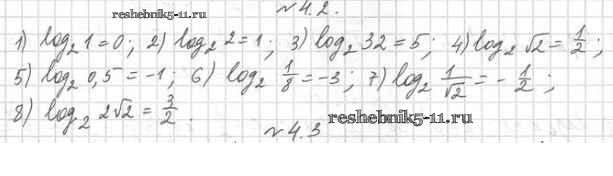 №4.2.
reshebnik5-11.ru
1) log₂ 1 = 0; 2) log₂ 2 = 1; 3) log₂ 32 = 5; 4) log₂ √2 = 1/2;
5) log₂ 0,5 = -1; 6) log₂ 1/8 = -3; 7) log₂ 1/√2 = -1/2;
8) log₂ 2√2 = 3/2.
reshebnik5-11.ru
№4.3